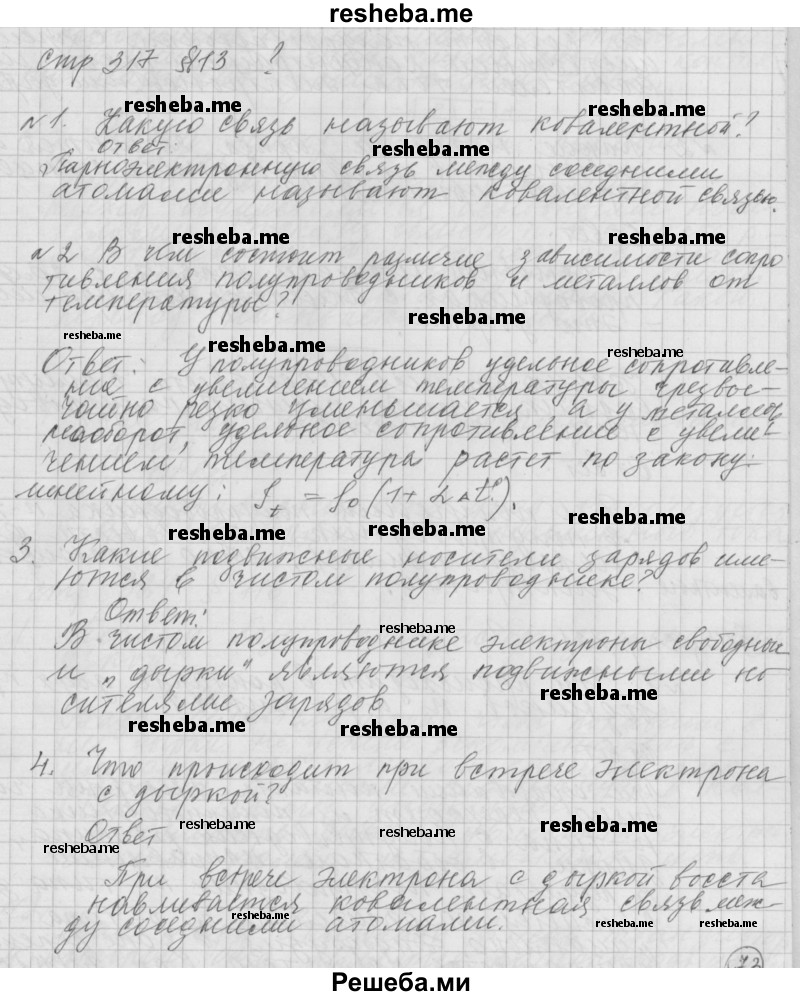 resheba.me
стр 317 §113 ?
resheba.me resheba.me
№1. Какую связь называют ковалентной?
Ответ: resheba.me
Парноэлектронную связь между соседними
атомами называют ковалентной связью.
resheba.me resheba.me
№2 В чём состоит различие зависимости сопро
тивления полупроводников и металлов от
температуры?
resheba.me resheba.me
Ответ: У полупроводников удельное сопротивле-
ние с увеличением температуры чрезвы-
чайно резко уменьшается, а у металлов,
наоборот, удельное сопротивление с увели-
чением температура растет по закону:
линейному: ρt = ρ0 (1+ α Δt°).
resheba.me resheba.me resheba.me
3. Какие подвижные носители зарядов име-
ются в чистом полупроводнике?
Ответ: resheba.me
В чистом полупроводнике электроны свободные
и „дырки" являются подвижными но
сителями зарядов
resheba.me resheba.me
4. Что происходит при встрече электрона
с дыркой?
Ответ resheba.me resheba.me resheba.me
resheba.me
При встрече электрона с дыркой восста
навливается ковалентная связь меж-
resheba.me resheba.me resheba.me
ду соседними атомами.
73
Решеба.ми